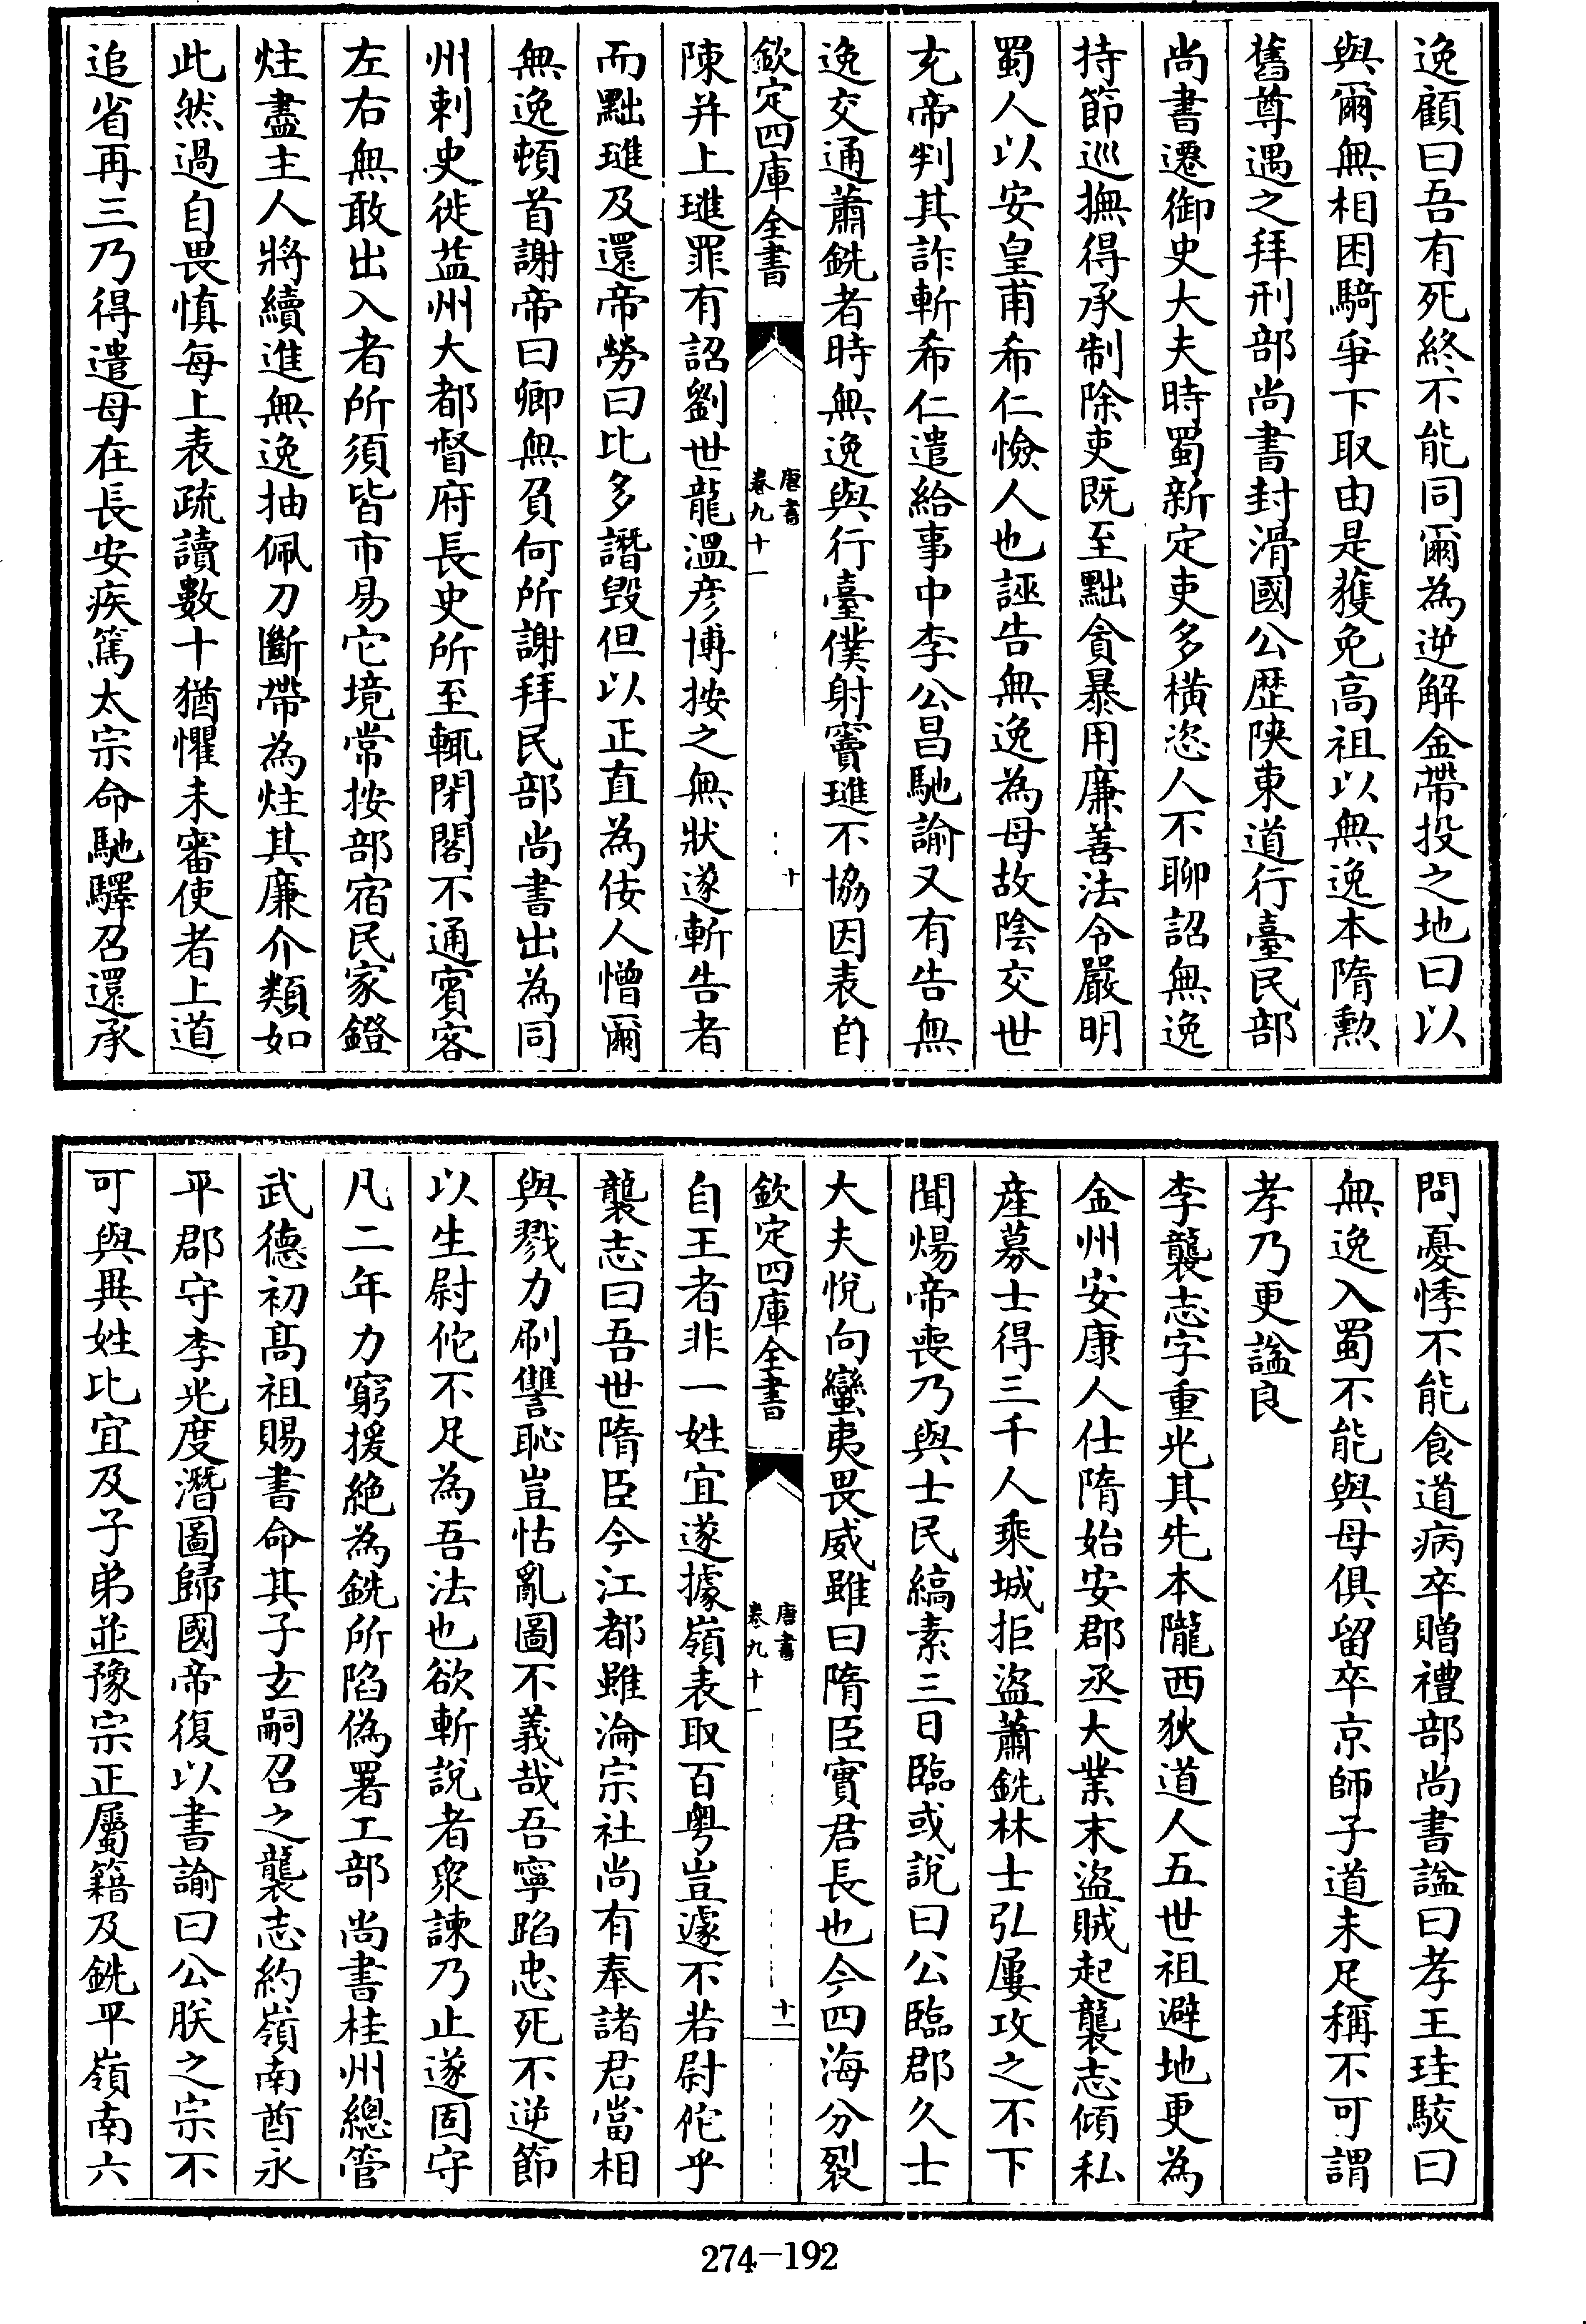 逸顧曰吾有死終不能同爾為逆解金帶投之地曰以
與爾無相困騎爭下取由是獲免高祖以無逸本隋勲
舊尊遇之拜刑部尚書封滑國公歴陜東道行臺民部
尚書遷御史大夫時蜀新定吏多橫恣人不聊詔無逸
持節巡撫得承制除吏既至黜貪暴用廉善法令嚴明
蜀人以安皇甫希仁憸人也誣告無逸為母故陰交世
充帝判其詐斬希仁遣給事中李公昌馳諭又有告無
逸交通蕭銑者時無逸與行臺僕射竇璡不協因表自
欽定四庫全書
唐書
卷九十一
十
陳并上璡罪有詔劉世龍溫彦博按之無狀遂斬告者
而黜璡及還帝勞曰比多譖毁但以正直為佞人憎爾
無逸頓首謝帝曰卿無負何所謝拜民部尚書出為同
州刺史徙益州大都督府長史所至輒閉閤不通賓客
左右無敢出入者所須皆市易它境常按部宿民家鐙
炷盡主人將續進無逸抽佩刀斷帶為炷其廉介類如
此然過自畏慎每上表疏讀數十猶懼未審使者上道
追省再三乃得遣母在長安疾篤太宗命馳驛召還承
問憂悸不能食道病卒贈禮部尚書諡曰孝王珪駮曰
無逸入蜀不能與母俱留卒京師子道未足稱不可謂
孝乃更諡良
李襲志字重光其先本隴西狄道人五世祖避地更為
金州安康人仕隋始安郡丞大業末盜賊起襲志傾私
産募士得三千人乘城拒盜蕭銑林士弘屢攻之不下
聞煬帝喪乃與士民縞素三日臨或說曰公臨郡久士
大夫悅向蠻夷畏威雖曰隋臣實君長也今四海分裂
欽定四庫全書
唐書
卷九十一
十一
自王者非一姓宜遂據嶺表取百粤豈遽不若尉佗乎
襲志曰吾世隋臣今江都雖淪宗社尚有奉諸君當相
與戮力刷讐恥豈怙亂圖不義哉吾寧蹈忠死不逆節
以生尉佗不足為吾法也欲斬說者衆諫乃止遂固守
凡二年力窮援絶為銑所陷偽署工部尚書桂州總管
武德初髙祖賜書命其子玄嗣召之襲志約嶺南酋永
平郡守李光度潛圖歸國帝復以書諭曰公朕之宗不
可與異姓比宜及子弟並豫宗正屬籍及銑平嶺南六
274-192